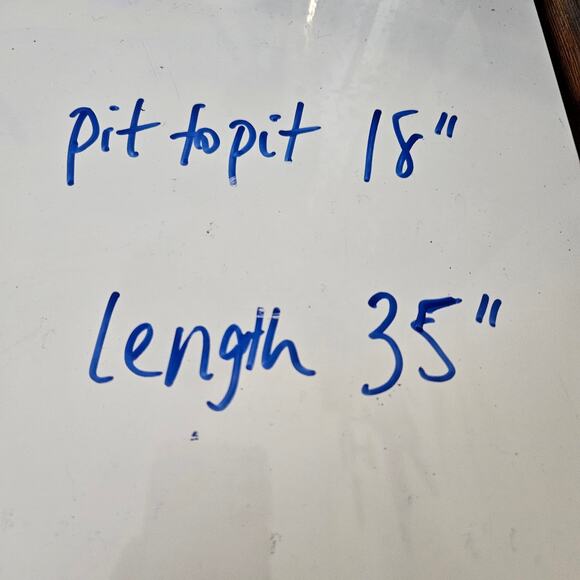 pit to pit 18"
length 35"